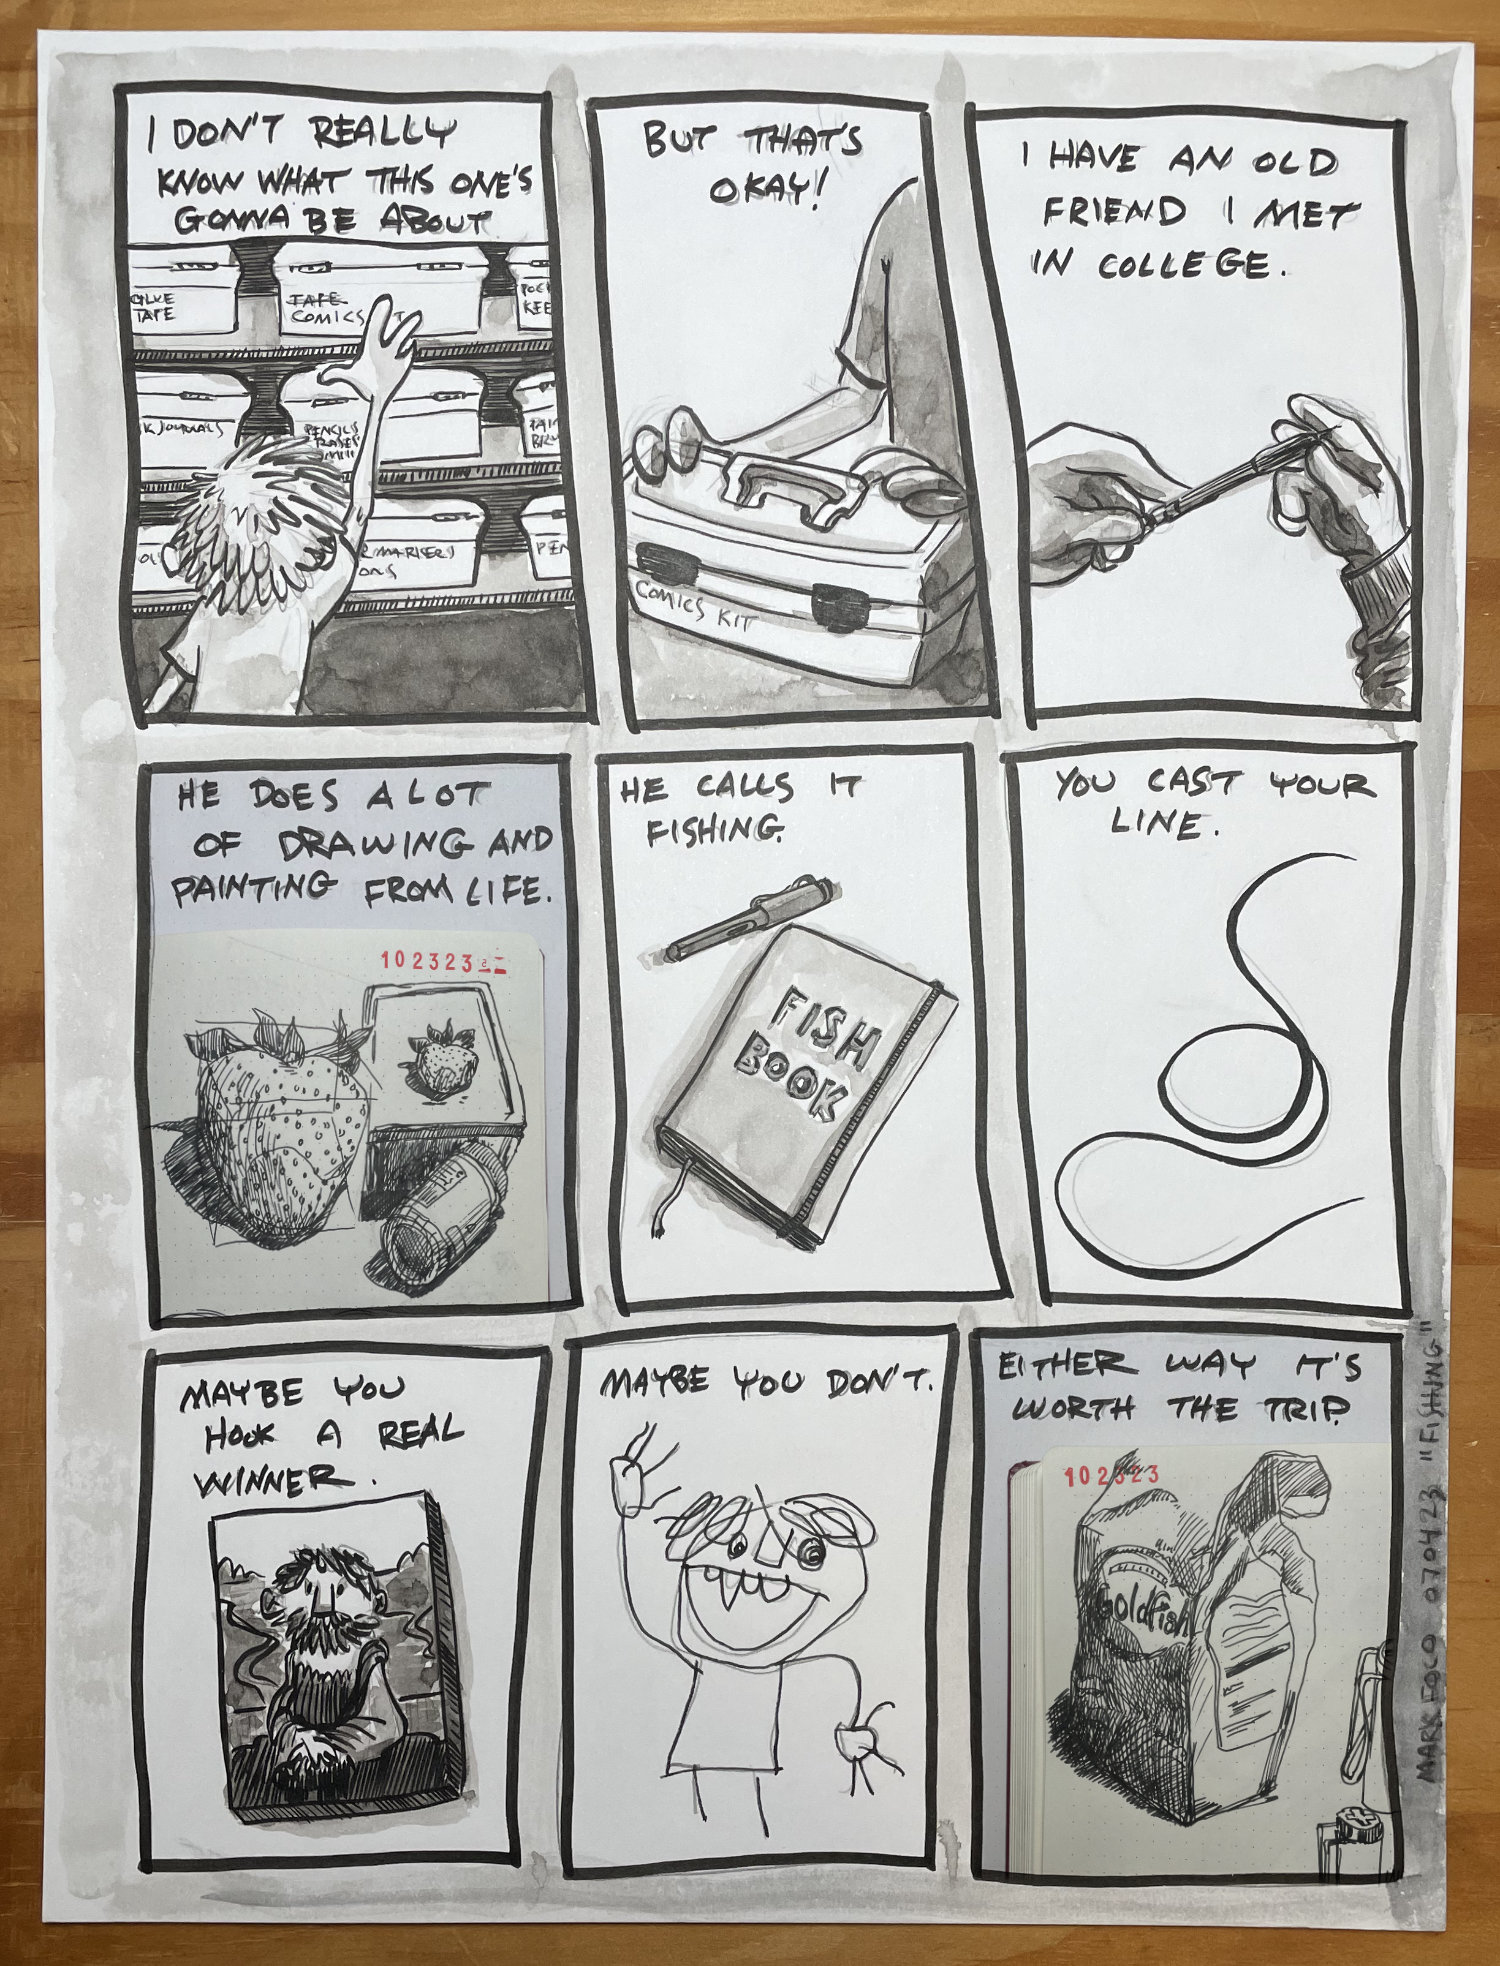 I DON'T REALLY
KNOW WHAT THIS ONE'S
GONNA BE ABOUT
GLUE
TAPE
TAPE
COMICS
KEE
K JOURNALS
PENCILS
MARKERS
ONS
PEN
BUT THAT'S
OKAY!
COMICS KIT
I HAVE AN OLD
FRIEND I MET
IN COLLEGE.
HE DOES A LOT
OF DRAWING AND
PAINTING FROM LIFE.
102323
HE CALLS IT
FISHING.
FISH
BOOK
YOU CAST YOUR
LINE.
MAYBE YOU
HOOK A REAL
WINNER.
MAYBE YOU DON'T.
EITHER WAY IT'S
WORTH THE TRIP.
102323
Goldfish
MARK FOCO 070423 "FISHING"